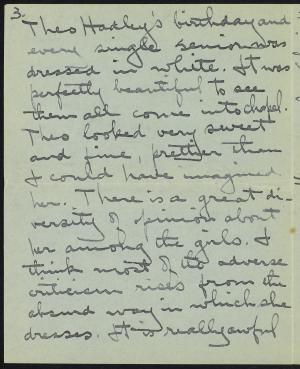 3.
Theo Hadley's birthday and
every single senior was
dressed in white. It was
perfectly beautiful to see
them all come into chapel.
Theo looked very sweet
and fine, prettier than
I could have imagined
her. There is a great di-
versity of opinion about
her among the girls. I
think most of the adverse
criticism rises from the
absurd way in which she
dresses. It is really awful